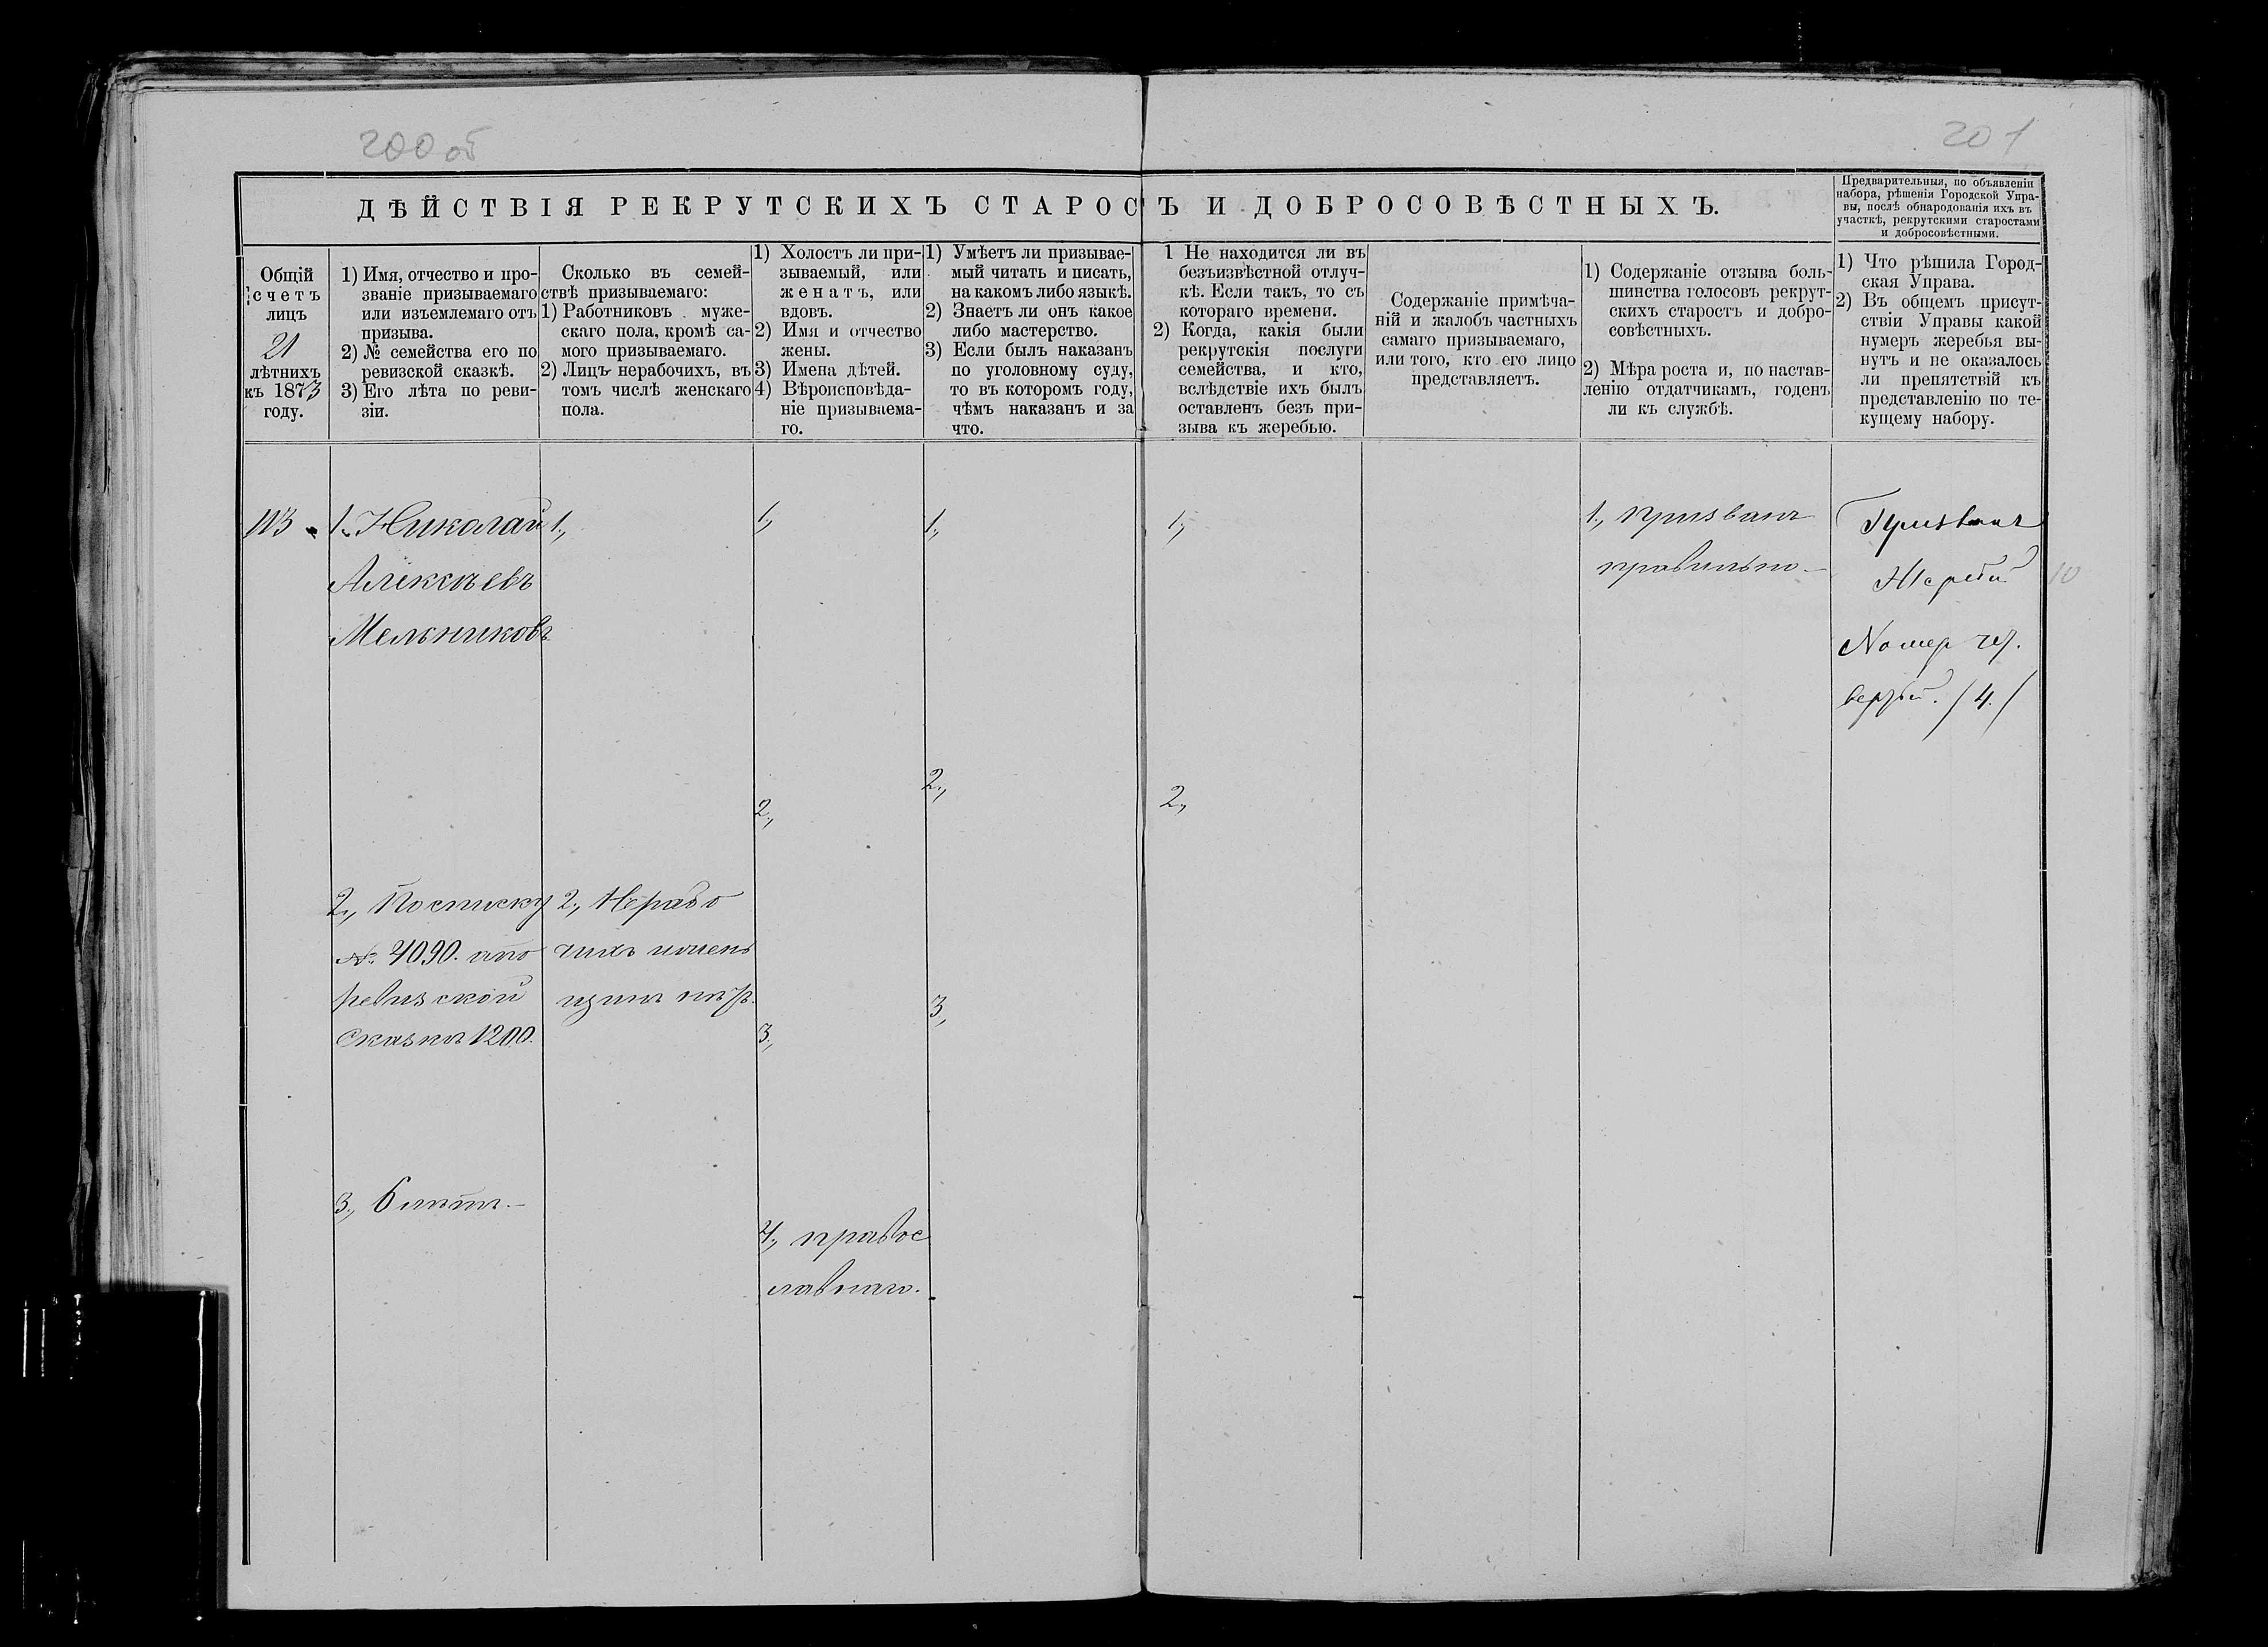 200 об
201
ДѢЙСТВІЯ РЕКРУТСКИХЪ СТАРОСТЪ И ДОБРОСОВѢСТНЫХЪ.
Предварительныя, по объявленіи
набора, рѣшенія Городской Упра-
вы, послѣ обнародованія ихъ въ
участкѣ, рекрутскими старостами
и добросовѣстными.
Общій
счетъ
лицъ
21
лѣтнихъ
къ 1873
году.
1) Имя, отчество и про-
званіе призываемаго
или изъемлемаго отъ
призыва.
2) № семейства его по
ревизской сказкѣ.
3) Его лѣта по реви-
зіи.
Сколько въ семей-
ствѣ призываемаго:
1) Работниковъ муже-
скаго пола, кромѣ са-
мого призываемаго.
2) Лицъ нерабочихъ, въ
томъ числѣ женскаго
пола.
1) Холостъ ли при-
зываемый, или
женатъ, или
вдовъ.
2) Имя и отчество
жены.
3) Имена дѣтей.
4) Вѣроисповѣда-
ніе призываема-
го.
1) Умѣетъ ли призывае-
мый читать и писать,
на какомъ либо языкѣ.
2) Знаетъ ли онъ какое
либо мастерство.
3) Если былъ наказанъ
по уголовному суду,
то въ которомъ году,
чѣмъ наказанъ и за
что.
1 Не находится ли въ
безъизвѣстной отлуч-
кѣ. Если такъ, то съ
котораго времени.
2) Когда, какія были
рекрутскія послуги
семейства, и кто,
вслѣдствіе ихъ былъ
оставленъ безъ при-
зыва къ жеребью.
Содержаніе примѣча-
ній и жалобъ частныхъ
самаго призываемаго,
или того, кто его лицо
представляетъ.
1) Содержаніе отзыва боль-
шинства голосовъ рекрут-
скихъ старостъ и добро-
совѣстныхъ.
2) Мѣра роста и, по настав-
ленію отдатчикамъ, годенъ
ли къ службѣ.
1) Что рѣшила Город-
ская Управа.
2) Въ общемъ присут-
ствіи Управы какой
нумеръ жеребья вы-
нутъ и не оказалось
ли препятствій къ
представленію по те-
кущему набору.
113.
1. Николай
Алексѣевъ
Мельниковъ
2., По списку
№ 4090. а по
ревизской
сказкѣ 1200.
3., 6 лѣтъ.—
1.,
2., Нерабо
чихъ и жен
щинъ нѣтъ.
1.,
2.,
3.,
4., правос
лавнаго.
1.,
2.,
3.,
1.,
2.,
1., призванъ
правильно.—
Призванъ
Жребій
Номер чет.
вертый. /4./
10